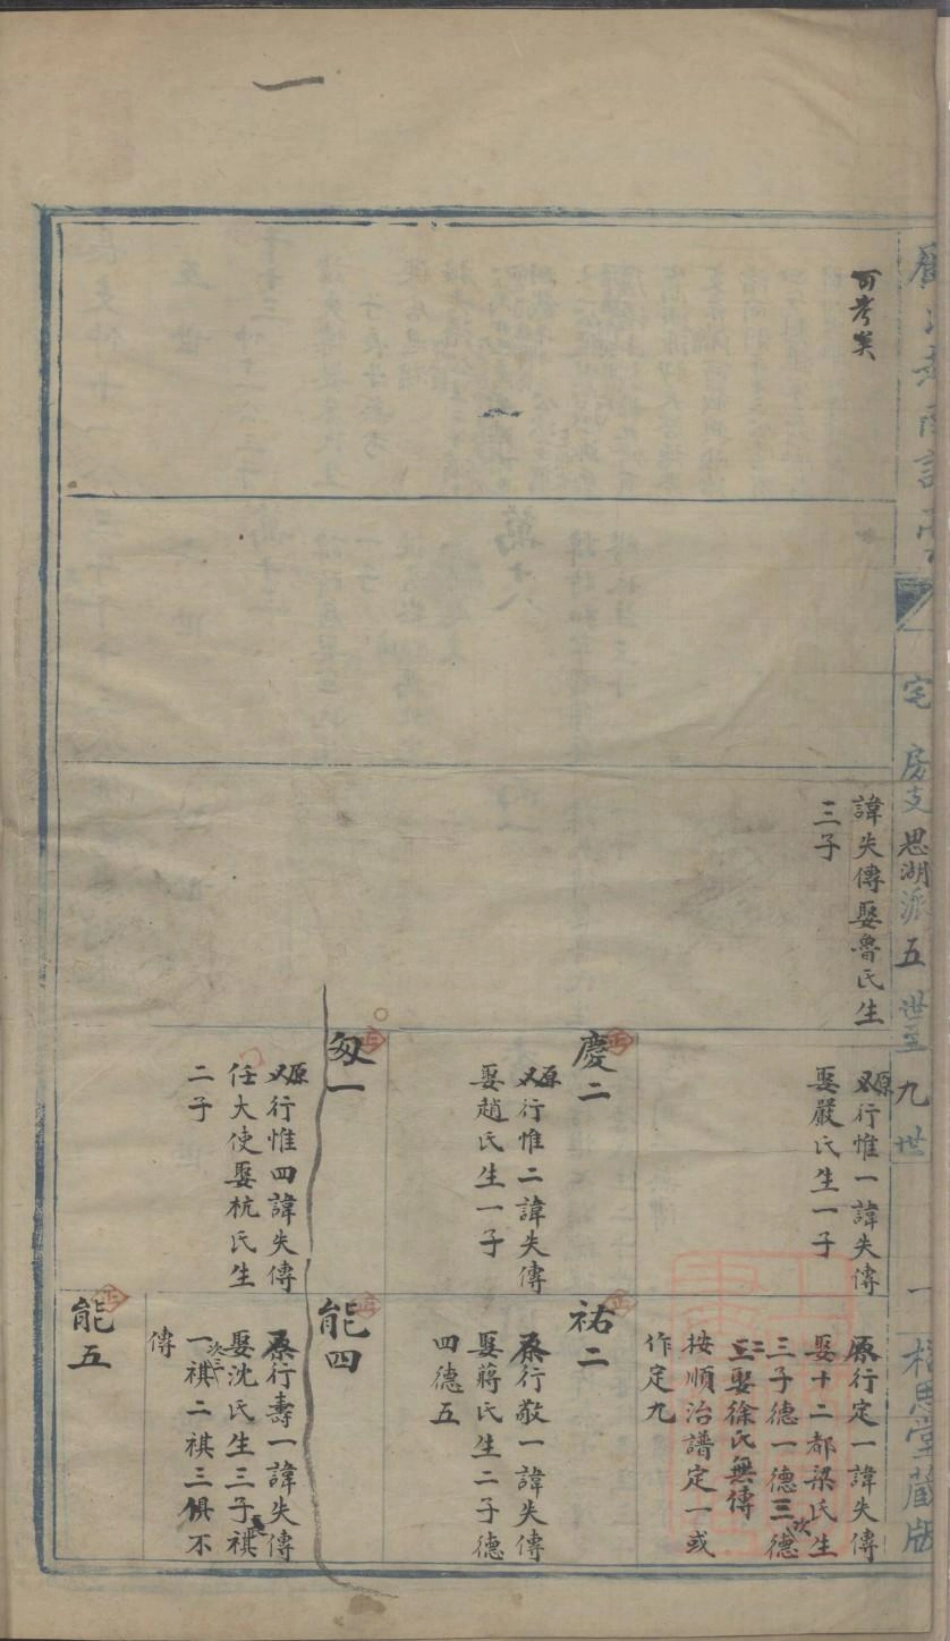 可考矣
諱失傳娶魯氏生
三子
原行惟一諱失傳
娶嚴氏生一子
原行定一諱失傳
娶十二都梁氏生
三子德一德三次德
二娶徐氏無傳
按順治譜定一或
作定九
慶二
原行惟二諱失傳
娶趙氏生一子
祐二
原行敬一諱失傳
娶蔣氏生二子德
四德五
匁一
原行惟四諱失傳
任大使娶杭氏生
二子
能四
原行壽一諱失傳
娶沈氏生三子長祺
一次三祺二祺三俱不
傳
能五
宅
房支思湖派五世至九世
一